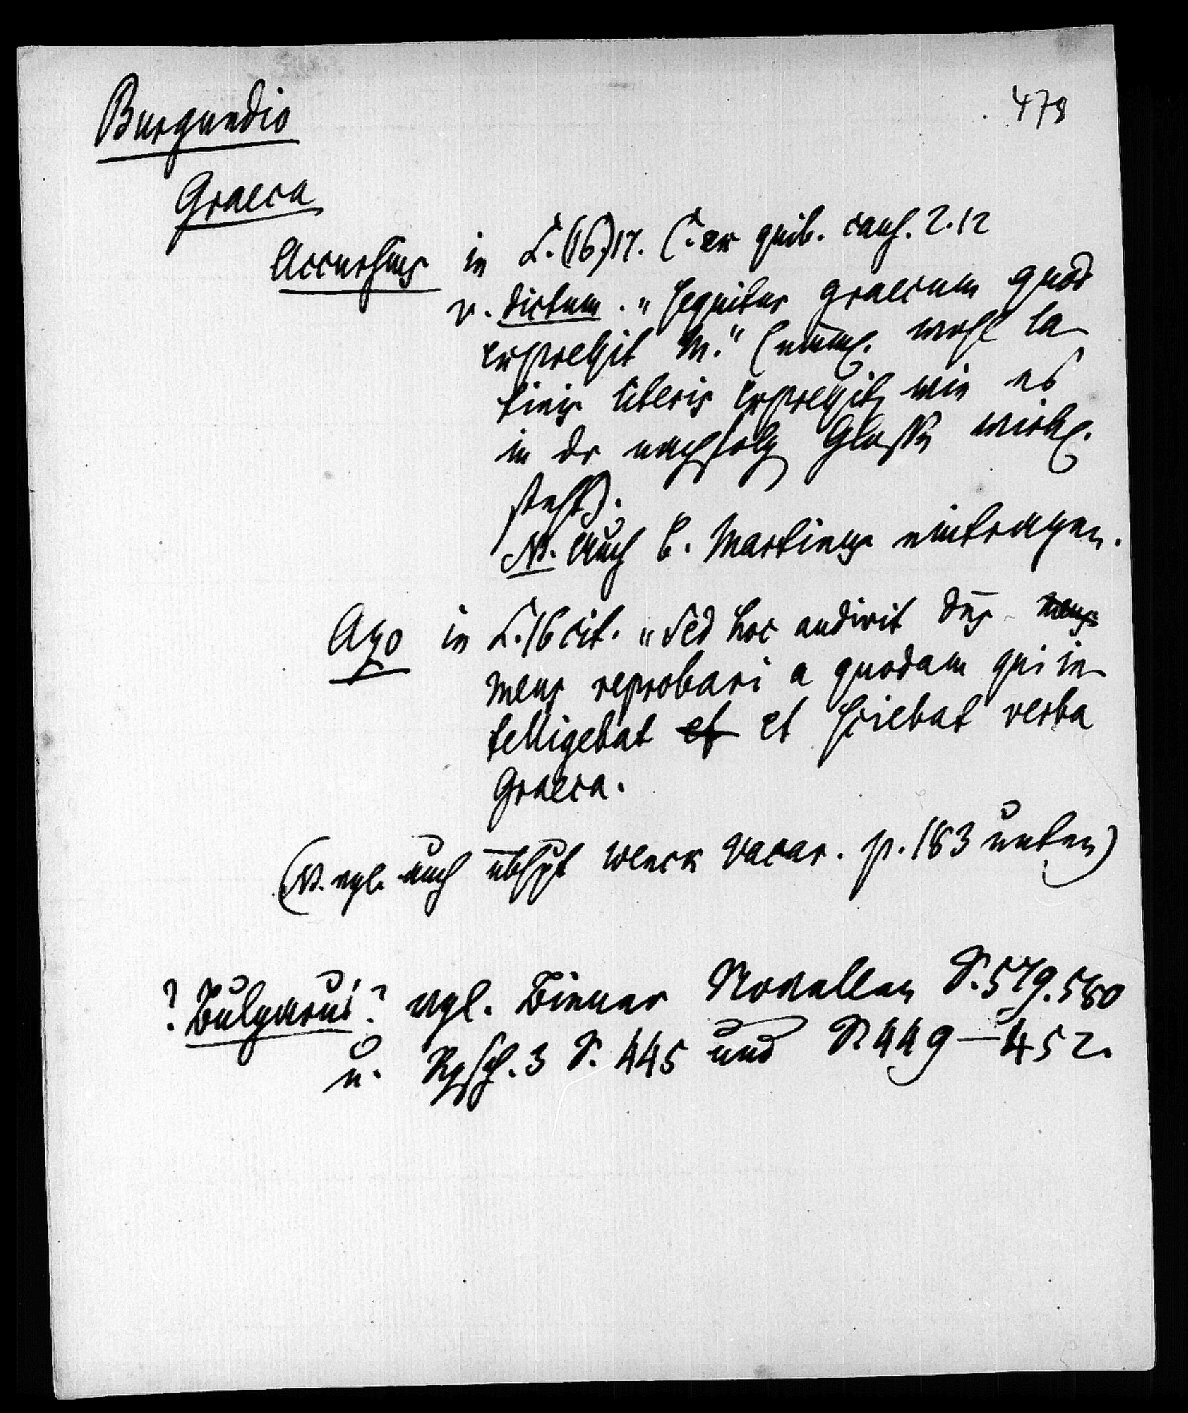 Burgundio
478
Graeca
Accursius in L. (16.) 17. C. ex quib. caus. 2. 12
v. dictum. "Sequitur graecum quod
expressit M." ( wohl la-
tinis literis expressit, wie es
in der nachfolg Glosse wirkl.
steht).
NB. Auch b. Martinus eintragen.
Azo in L. 16 cit. "Sed hoc audivit dns
meus reprobari a quodam qui in-
telligebat et et sciebat verba
Graeca.
(NB. vgl. auch Wenck Vacar. p. 183 unten)
? Bulgarus ? vgl. Biener Novellen S. 579. 580
u. Ztsch. 3 S. 445 und S. 449–452.